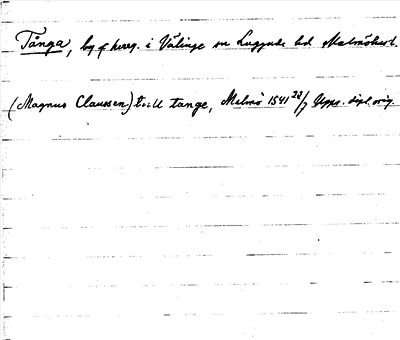 Tånga, by o herreg. i Välinge sn Luggude hd Malmöhusl.
(Magnus Claussen) till tange, Malmö 1541 22/7 dipl. orig.